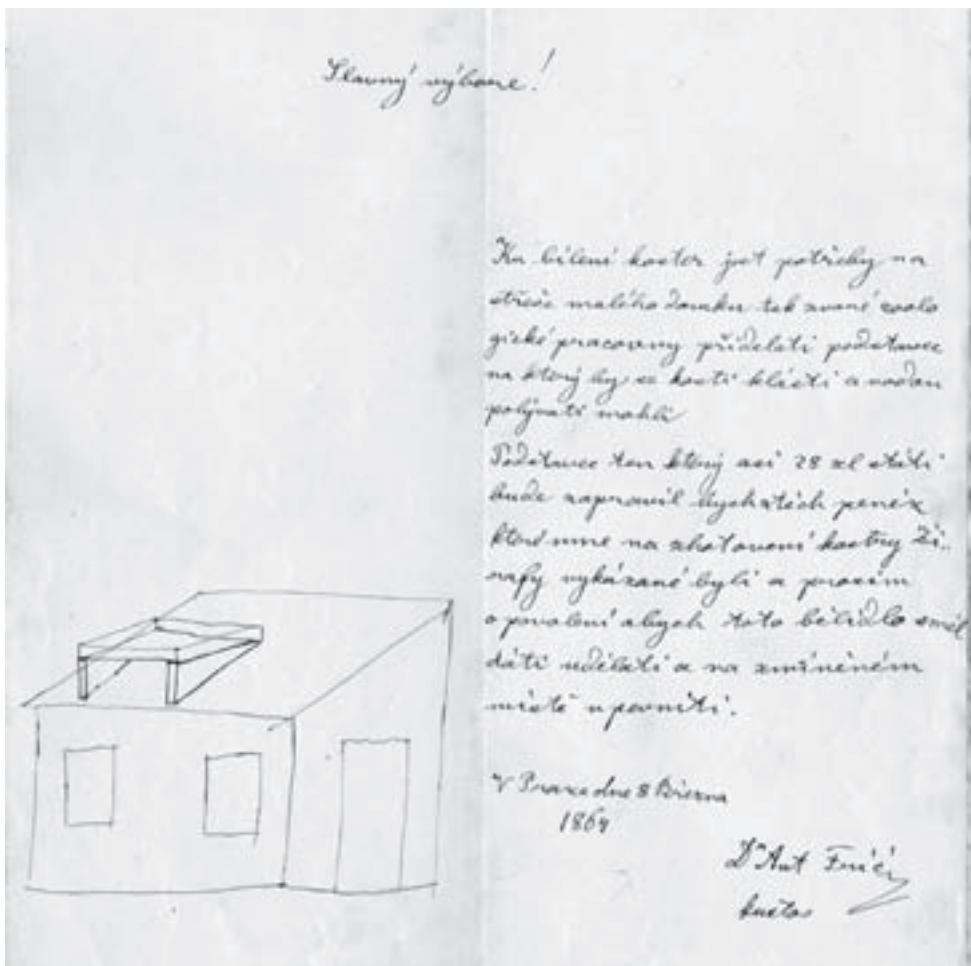 Slavný výbore!
Ku bílení koster jest potřeby na
střeše malého domku tak zvané zoolo
gické pracovny přidělati podstavec
na který by se kosti klásti a vodou
polývati mohli
Podstavec ten který asi 28 zl státi
bude zapravil bych z těch peněz
které mne na zhotovení kostry Ži..
rafy vykázané byli a prosím
o povolení abych toto bělidlo směl
dáti udělati a na zmíněném
místě upevniti.
V Praze dne 8 Března
Dr Ant Frič
kustos